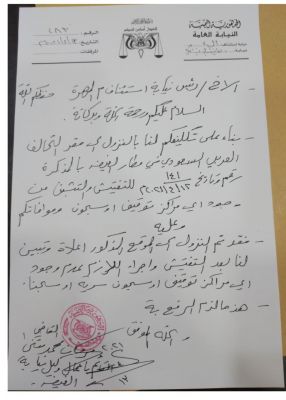 الجمهورية اليمنية
النيابة العامة
الرقم: ١٨٢
التاريخ:
المرفقات
الأخ/ رئيس نيابة استئناف م/المهرة
السلام عليكم ورحمة الله وبركاته،
بناء على تكليفكم لنا بالنزول الى مقر التحالف
العربي السعودي في مطار الغيضه بالمذكرة
رقم وتاريخ ١٤١ ٢٠٢١/٤/١٢ للتفتيش والتحقق من
وجود اي مراكز توقيف او سجون وموافاتكم
وعليه
فقد تم النزول الى الموقع المذكور اعلاه وتبين
لنا بعد التفتيش واجراء اللازم بعدم وجود
اي مراكز توقيف او سجون سريه او سجينا.
هذا مالزم الرفع به
والله الموفق
القاضي /